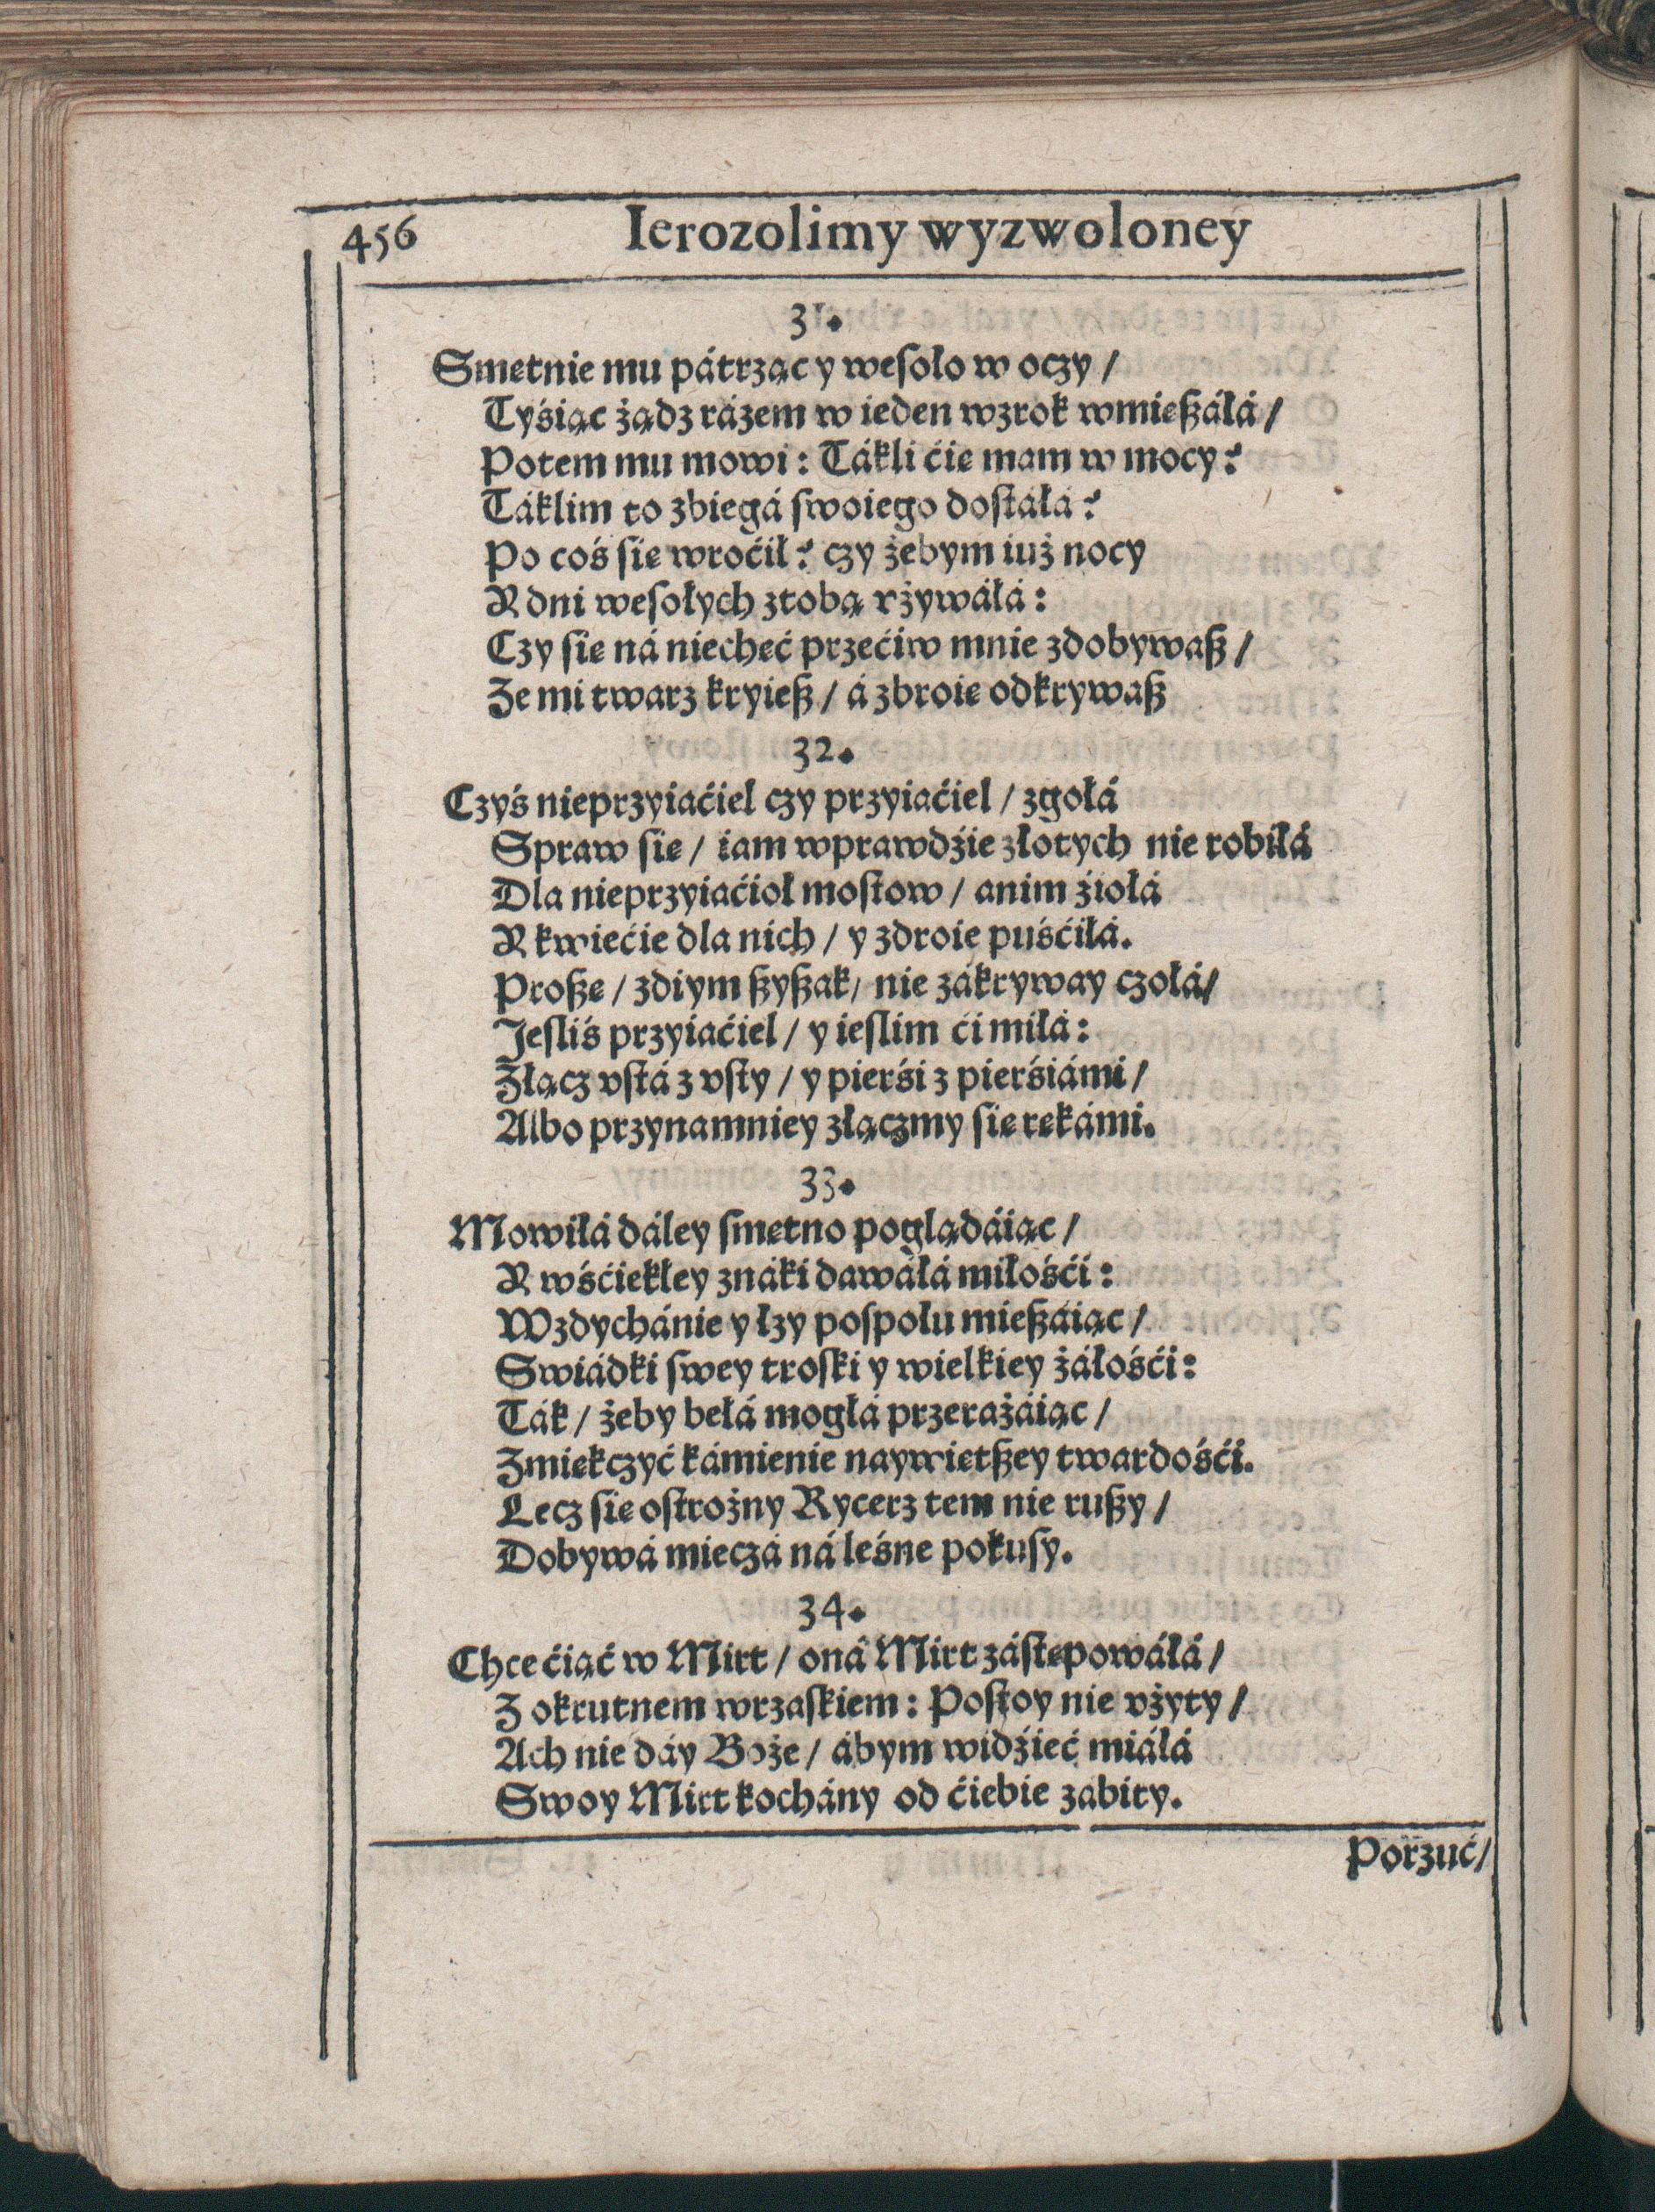 456 Ierozolimy wyzwoloney
31.
Smętnie mu pátrząc y wesoło w oczy /
Tyśiąc żądz rázem w ieden wzrok wmieszáłá /
Potem mu mowi: Tákli ćię mam w mocy?
Táklim to zbiegá swoiego dostáłá?
Po coś się wroćił? czy żebym iuż nocy
Y dni wesołych ztobą vżywáłá:
Czy się ná niechęć przećiw mnie zdobywasz /
Ze mi twarz kryiesz / á zbroię odkrywasz
32.
Czyś nieprzyiaćiel czy przyiaćiel / zgołá
Spraw się / iam wprawdźie złotych nie robiłá
Dla nieprzyiaćioł mostow / anim źiołá
Y kwiećie dla nich / y zdroie puśćiłá.
Proszę / zdiym szyszak / nie zákryway czołá /
Jesliś przyiaćiel / y ieslim ći miłá:
Złącz vstá z vsty / y pierśi z pierśiámi /
Albo przynamniey złączmy się rękámi.
33.
Mowiłá dáley smętno poglądáiąc /
Y wśćiekłey znáki dawáłá miłośći:
Wzdychánie y łzy pospołu mieszáiąc /
Swiádki swey troski y wielkiey żáłośći:
Ták / żeby byłá mogłá przerażáiąc /
Zmiękczyć kámienie naywiętszey twardośći.
Lecz się ostrożny Rycerz tem nie ruszy /
Dobywá mieczá ná leśne pokusy.
34.
Chce ćiąć w Mirt / oná Mirt zástępowáłá /
Z okrutnem wrzaskiem: Postoy nie vżyty /
Ach nie day Boże / ábym widźieć miáłá
Swoy Mirt kochány od ćiebie zabity.
Porzuć /